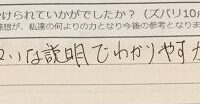 けられていかがでしたか？（ズバリ10
感想が、私達の何よりの力となり今後の参考となりま
いな説明でわかりやすか